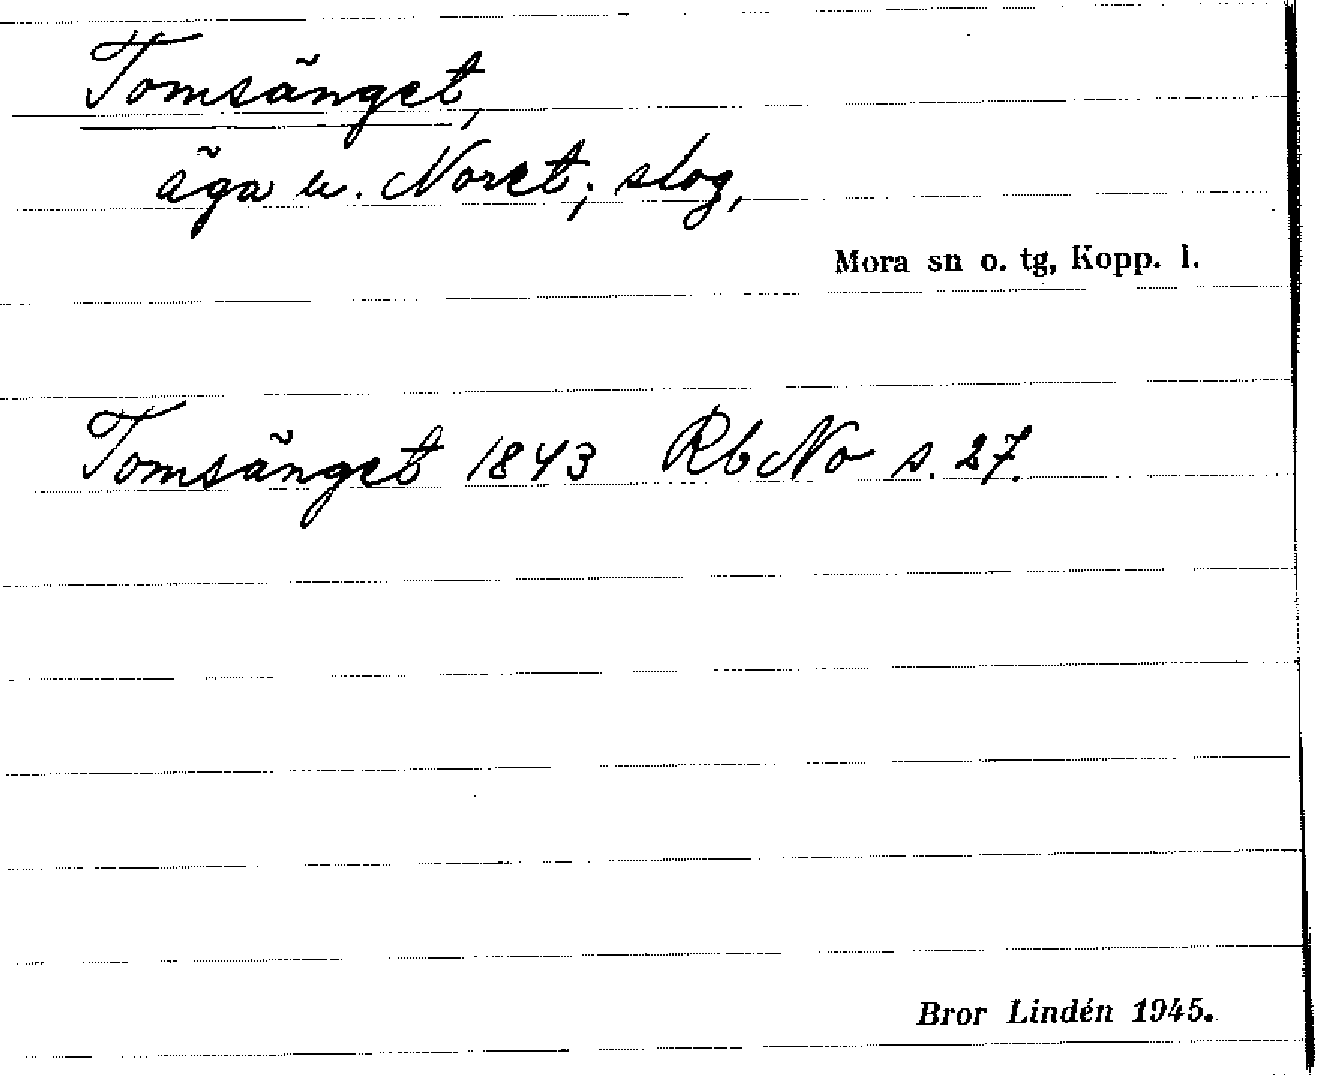 Tomsänget,
äga u. Noret; slog,
Mora sn o. tg, Kopp. l.
Tomsänget 1843 RbNo s. 27.
Bror Lindén 1945.